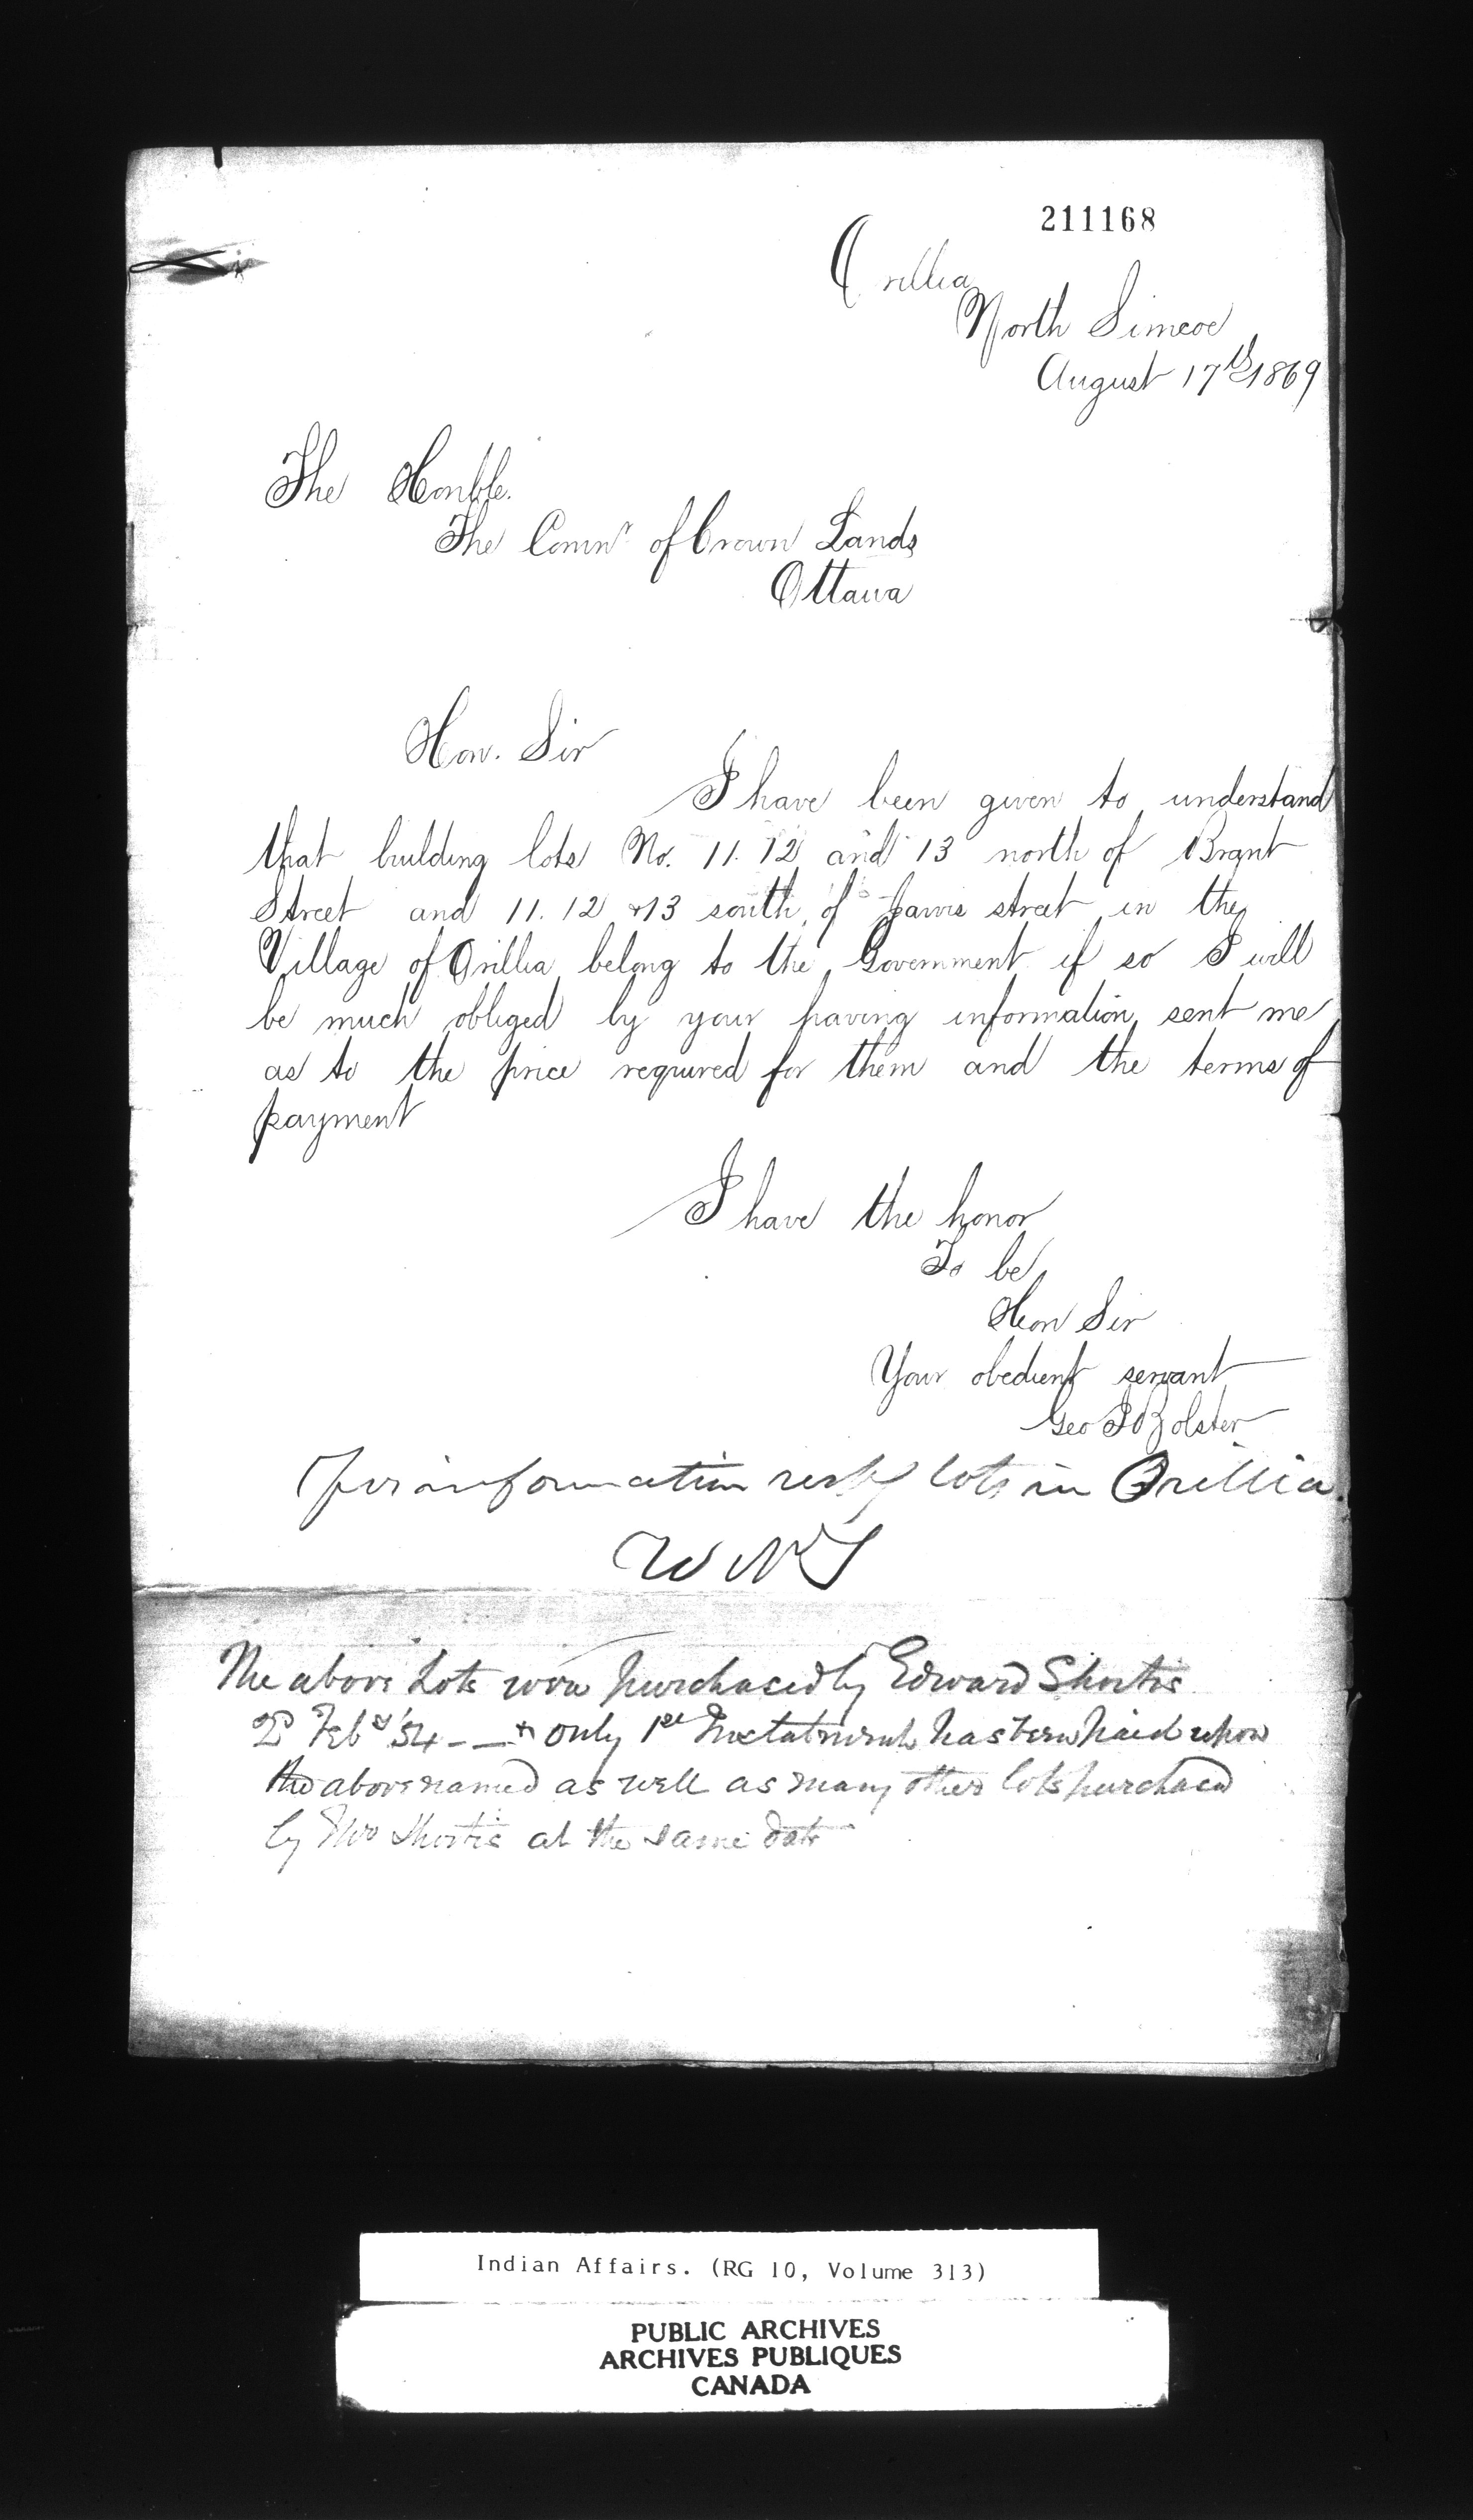 211168
Orillia
North Simcoe
August 17th 1869
The Honble.
The Comnr of Crown Lands
Ottawa
Hon. Sir
I have been given to understand
that building lots No. 11. 12 and 13 north of Brant
Street and 11. 12 & 13 south of Jarvis street in the
Village of Orillia belong to the Government if so I will
be much obliged by your having information sent me
as to the price required for them and the terms of
payment
I have the honor
To be
Hon Sir
Your obedient servant
Geo J Bolster
For information resptg lots in Orillia.
The above Lots were purchased by Edward Shortis
2d Feby '54 - - & only 1st Instalment has been paid upon
the above named as well as many other lots purchased
by Shortis at the same date
Indian Affairs. (RG 10, Volume 313)
PUBLIC ARCHIVES
ARCHIVES PUBLIQUES
CANADA